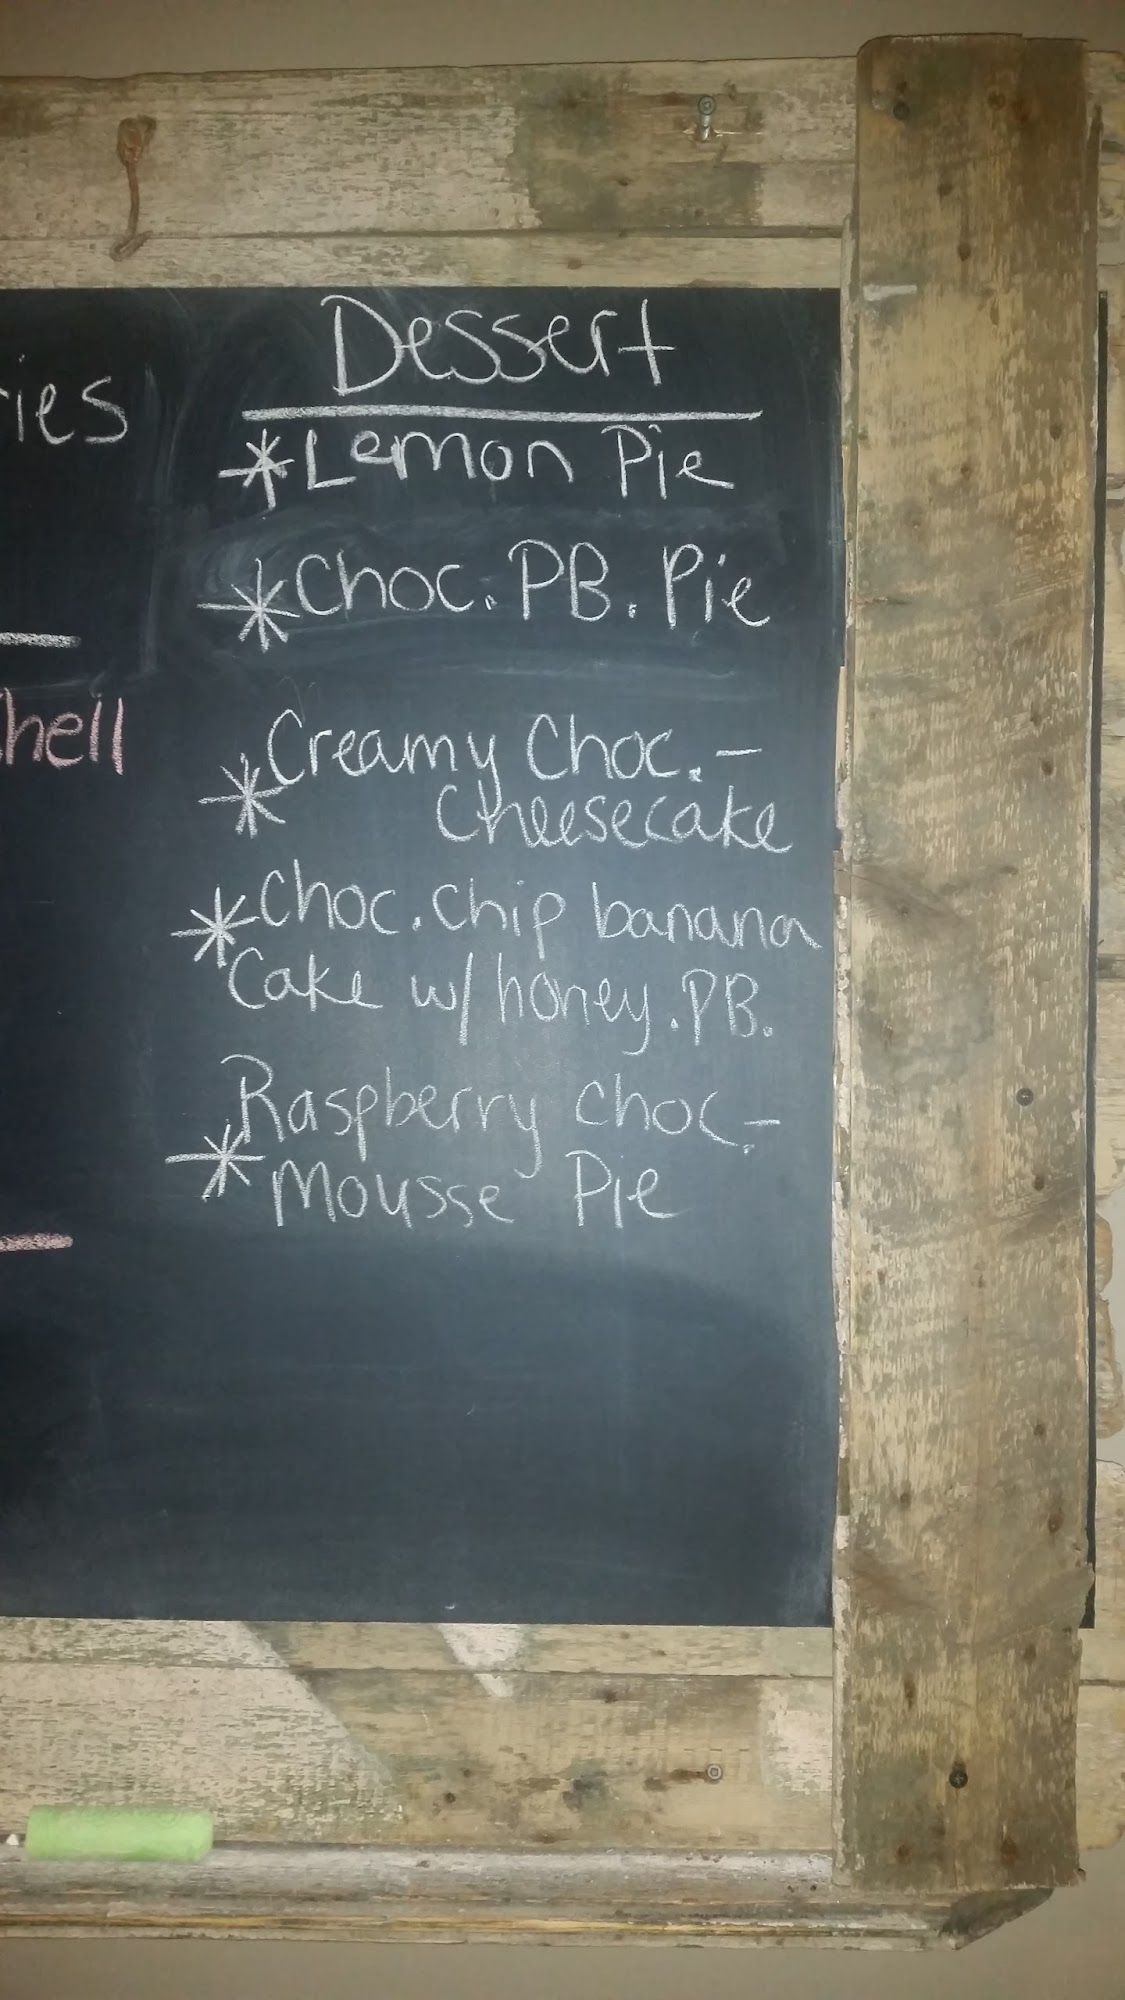 Dessert
*Lemon Pie
*Choc. PB. Pie
*Creamy Choc.-
Cheesecake
*Choc. Chip banana
Cake w/ honey. PB.
*Raspberry Choc.-
Mousse Pie